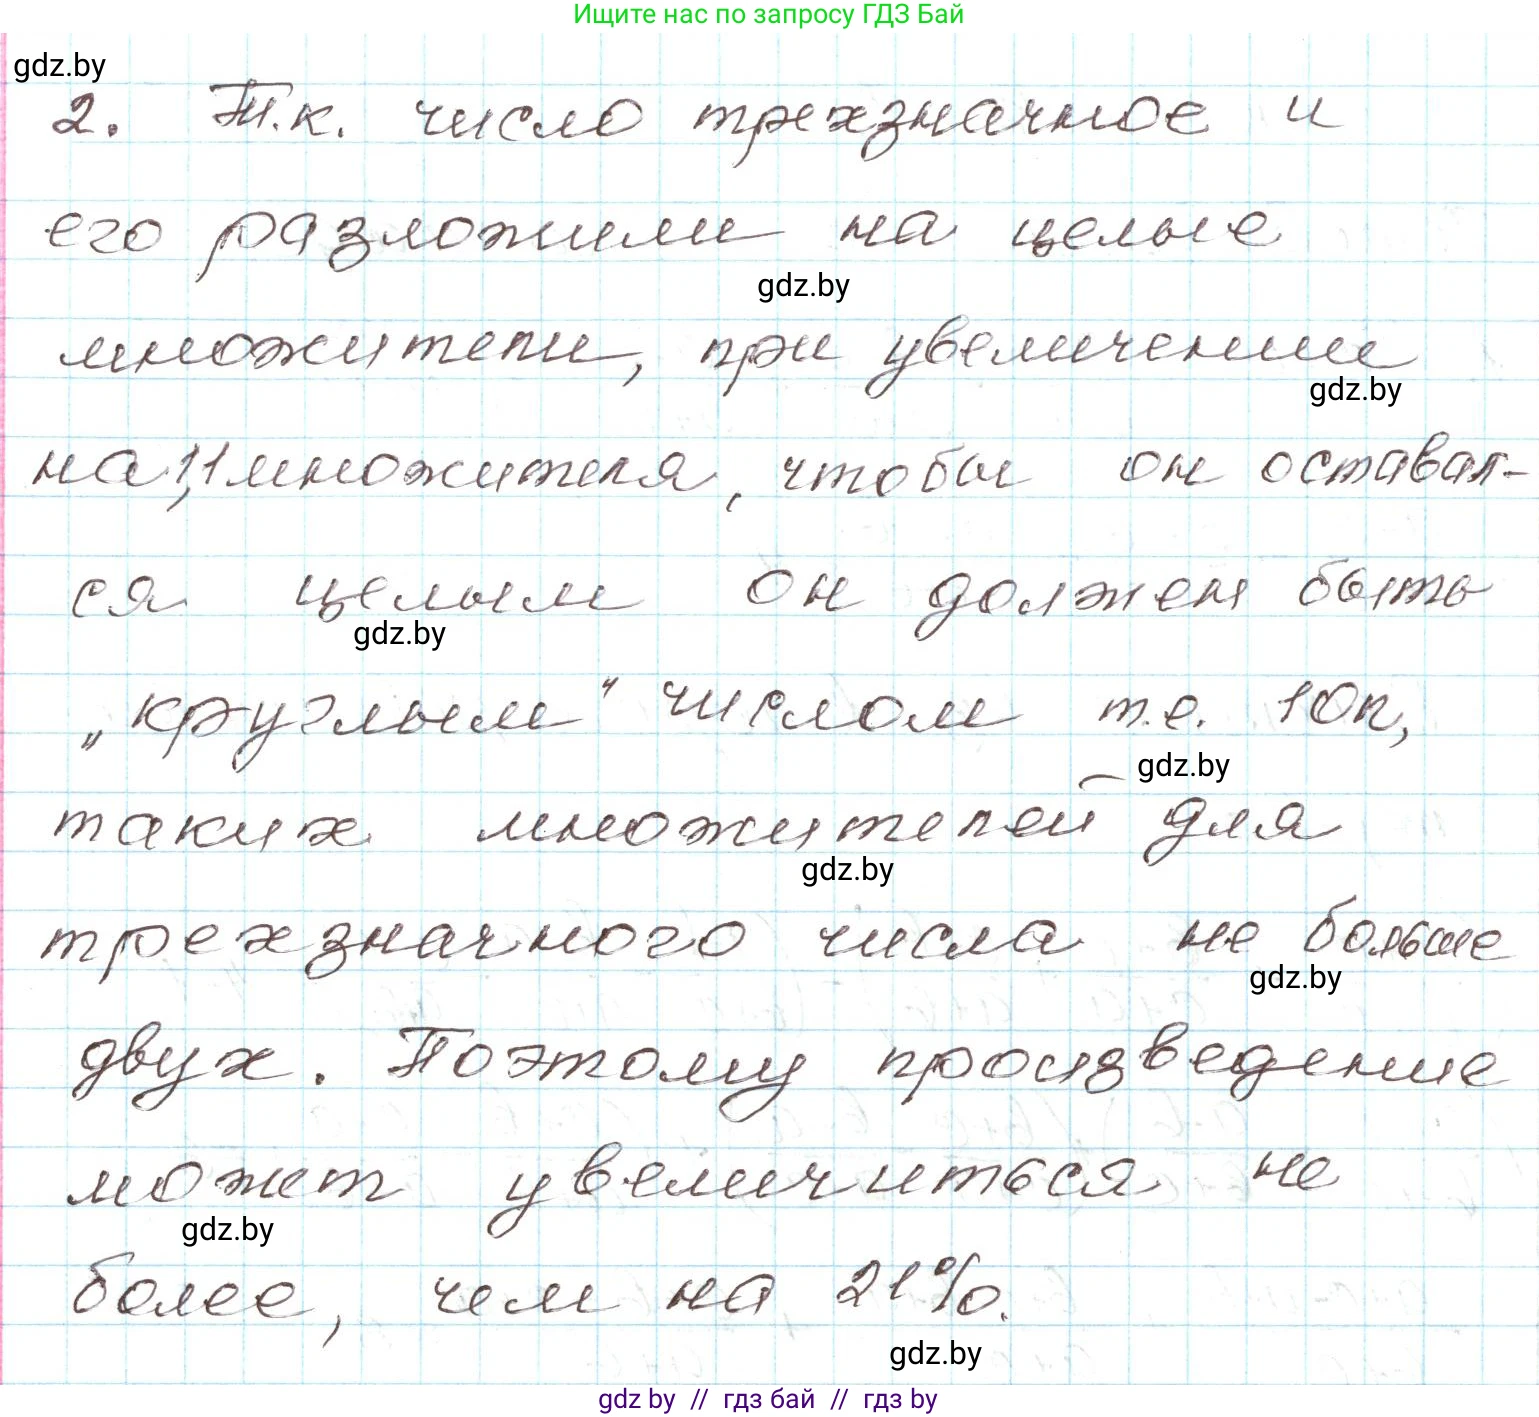 Ищите нас по запросу ГДЗ Бай
gdz.by
2. Т.к. число трехзначное и
его разложили на целые
gdz.by
множители, при увеличении
gdz.by
на 1,1 множителя, чтобы он оставал-
ся целым он должен быть
gdz.by
„круглым“ числом т.е. 10n,
gdz.by
таких множителей для
gdz.by
трехзначного числа не больше
gdz.by
двух. Поэтому произведение
может увеличиться не
gdz.by
более, чем на 21%.
gdz.by
gdz.by // гдз бай // гдз by